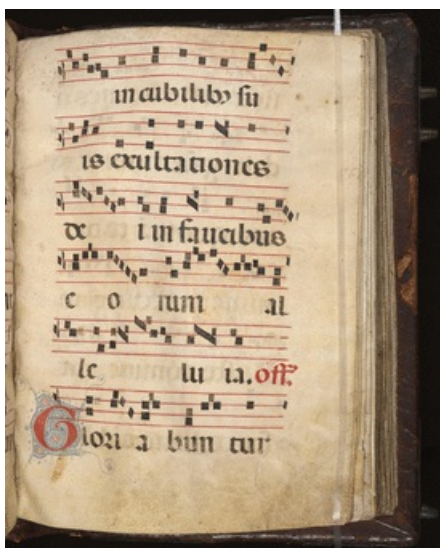 in cubilibꝫ su
is exultationes
de i in faucibus
e o rum al
le lu ia. off.
Glori a bun tur